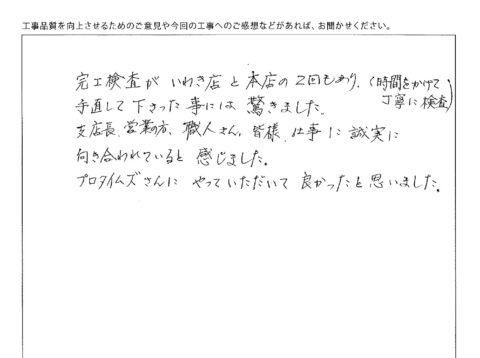 工事品質を向上させるためのご意見や今回の工事へのご感想などがあれば、お聞かせください。
完工検査が いわき店と本店の2回もあり、(時間をかけて
丁寧に検査)
手直しして下さった事には驚きました。
支店長、営業の方、職人さん、皆様、仕事に誠実に
向き合われていると感じました。
プロタイムズさんに やっていただいて 良かったと思いました。